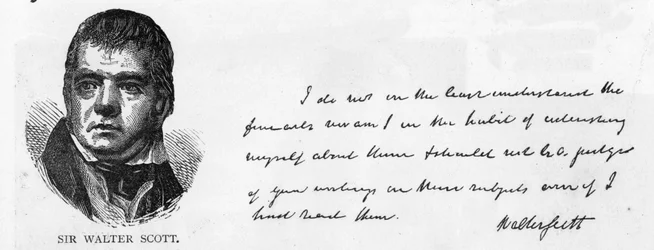 SIR WALTER SCOTT.
I do not in the least understand the
fine arts nor am I in the habit of interesting
myself about them & should not be a judge
of your writings on these subjects even if I
had read them.
Walter Scott